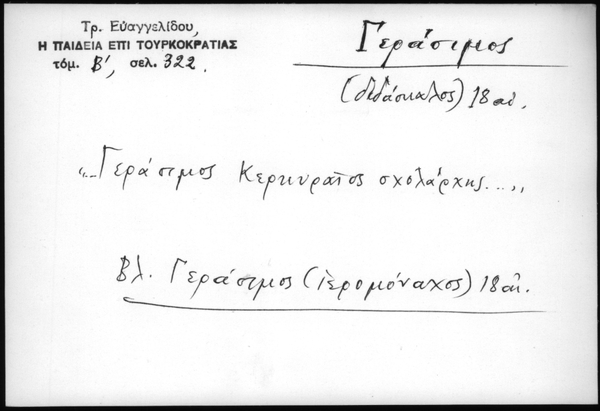 Τρ. Εὐαγγελίδου,
Η ΠΑΙΔΕΙΑ ΕΠΙ ΤΟΥΡΚΟΚΡΑΤΙΑΣ
τόμ. Β', σελ. 322.
Γεράσιμος
(διδάσκαλος) 18 αἰ.
"...Γεράσιμος Κερκυραῖος σχολάρχης...,,
Βλ. Γεράσιμος (ἱερομόναχος) 18 αἰ.